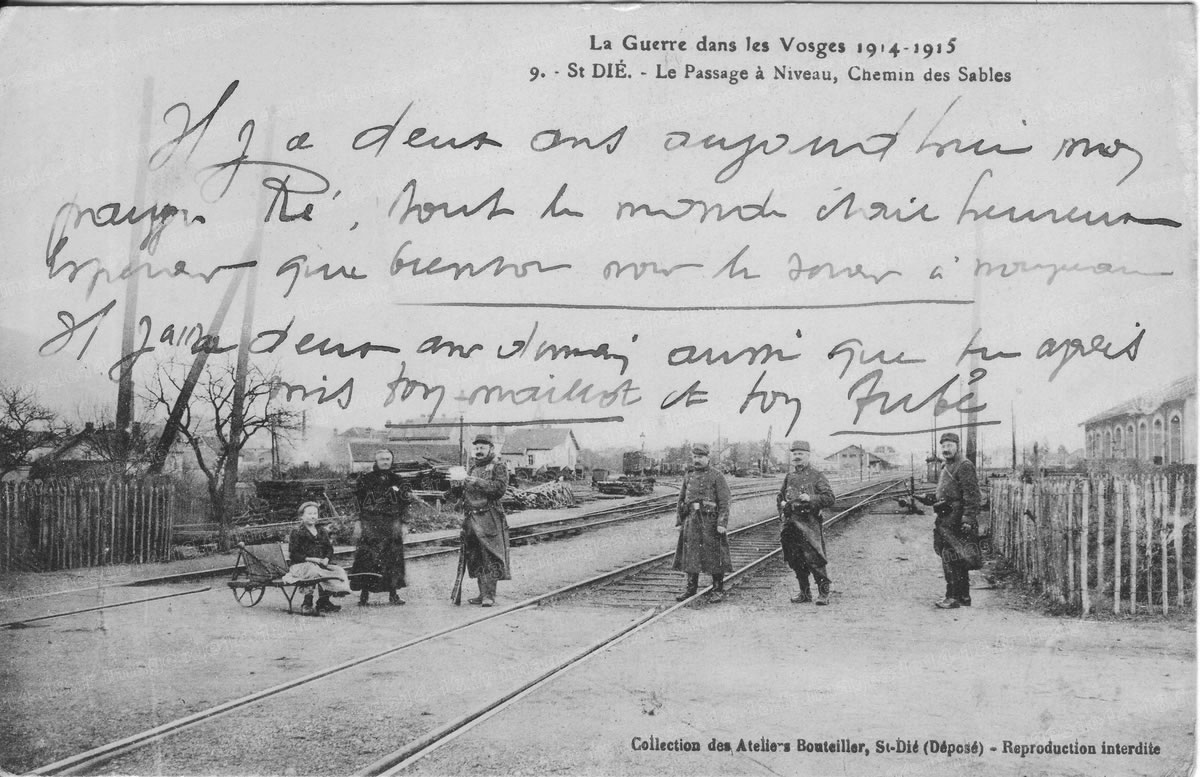 La Guerre dans les Vosges 1914-1915
9. - St DIÉ. - Le Passage à Niveau, Chemin des Sables
Il y a deux ans aujourd'hui mon
pauvre Ré, tout le monde était heureux
Espérer que bientôt nous le à nouveau
Il y aura deux ans demain aussi que tu après
mis ton maillot et ton
Collection des Ateliers Bouteiller, St-Dié (Déposé) - Reproduction interdite